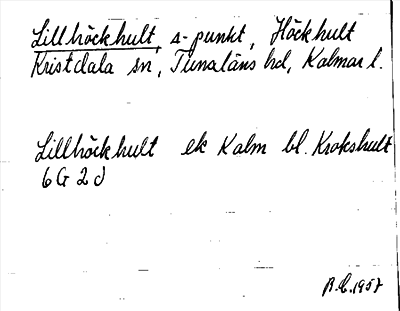 Lillhöckhult, s-punkt, Höckhult
Kristdala sn, Tunaläns hd, Kalmar l.
Lillhöckhult ek Kalm bl. Krokshult
6 G 2 d
1957